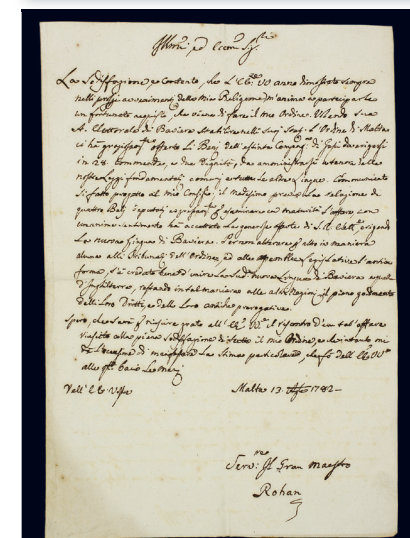 Illmi ed Eccmi Sigri
La Sodisfazione, e Contento, che l'EE: VV: anno dimostrato sempre
nelli prosperi avvenimenti della Mia Religione m'anima a parteciparle
un fortunato acquisto, che viene di fare il mio Ordine. Volendo S: A:
A. Elettorale di Baviera ne' Suoi Stati l'Ordine di Malta
ci ha offerto li Beni dell'estinta Compag: di Gesù
in 28. commende, e due da amministrarsi a tenore delle
nostre Leggi fondamentali comuni a tutte le altre Lingue. Communicato
Si fatto progetto al mio Consiglio, il medesimo previa la relazione di
quattro Balì deputati ad esaminare con maturità l'affare, con
unanime sentimento ha accettato le generose offerte di S. A. Elett: erigendo
La nuova Lingua di Baviera. Per non alterare in maniera
alcuna alli Tribunali dell'Ordine, ed alle Assemblee Legislative l'antica
forma, s'è creduto unire la Sud: nuova Lingua di Baviera a quella
d'Inghilterra, restando in tal maniera alle altre Nazioni il pieno godimento
delli Loro Dritti, e delle Loro antiche prerogative.
Spero, che Sarà per riuscire grato all' EE: VV: il riscontro d'un tal affare
riuscito alla piena Sodisfazione di tutto il mio Ordine, e che intanto mi
dà l'occasione di manifestar La Stima particolare, che fò dell' EE: VV:
alle q'li bacio Le Mani
Dell' EE: VV:
Malta 13. Agto 1782
Serv: Il Gran Maestro
Rohan